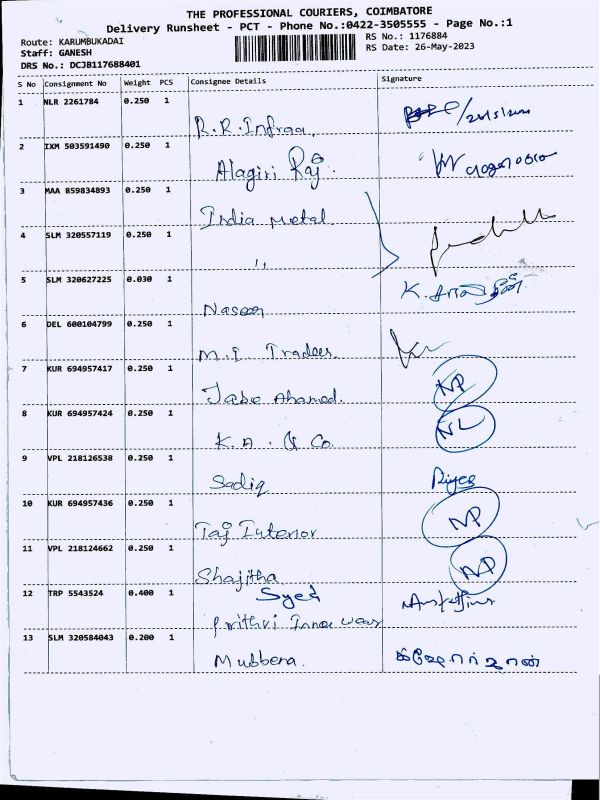 THE PROFESSIONAL COURIERS, COIMBATORE
Delivery Runsheet - PCT - Phone No.:0422-3505555 - Page No.:1
Route: KARUMBUKADAI
RS No.: 1176884
Staff: GANESH
RS Date: 26-May-2023
DRS No.: DCJB117688401
S No Consignment No Weight PCS Consignee Details Signature
1 NLR 2261784 0.250 1
R.R. Infraa,
2 IXM 503591490 0.250 1
Alagiri Raj
3 MAA 859834893 0.250 1
India Metal
4 SLM 320557119 0.250 1
,,
5 SLM 320627225 0.030 1
Naseer
6 DEL 600104799 0.250 1
M.I. Traders
7 KUR 694957417 0.250 1
NP
Jabe Ahamed.
8 KUR 694957424 0.250 1
NL
K.A. & Co.
9 VPL 218126538 0.250 1
Sadiq Riyas
10 KUR 694957436 0.250 1
NP
Taj Interior
11 VPL 218124662 0.250 1
NP
Shajitha
12 TRP 5543524 0.400 1
Syed
Prithvi Inner wear
13 SLM 320584043 0.200 1
Mubbena.